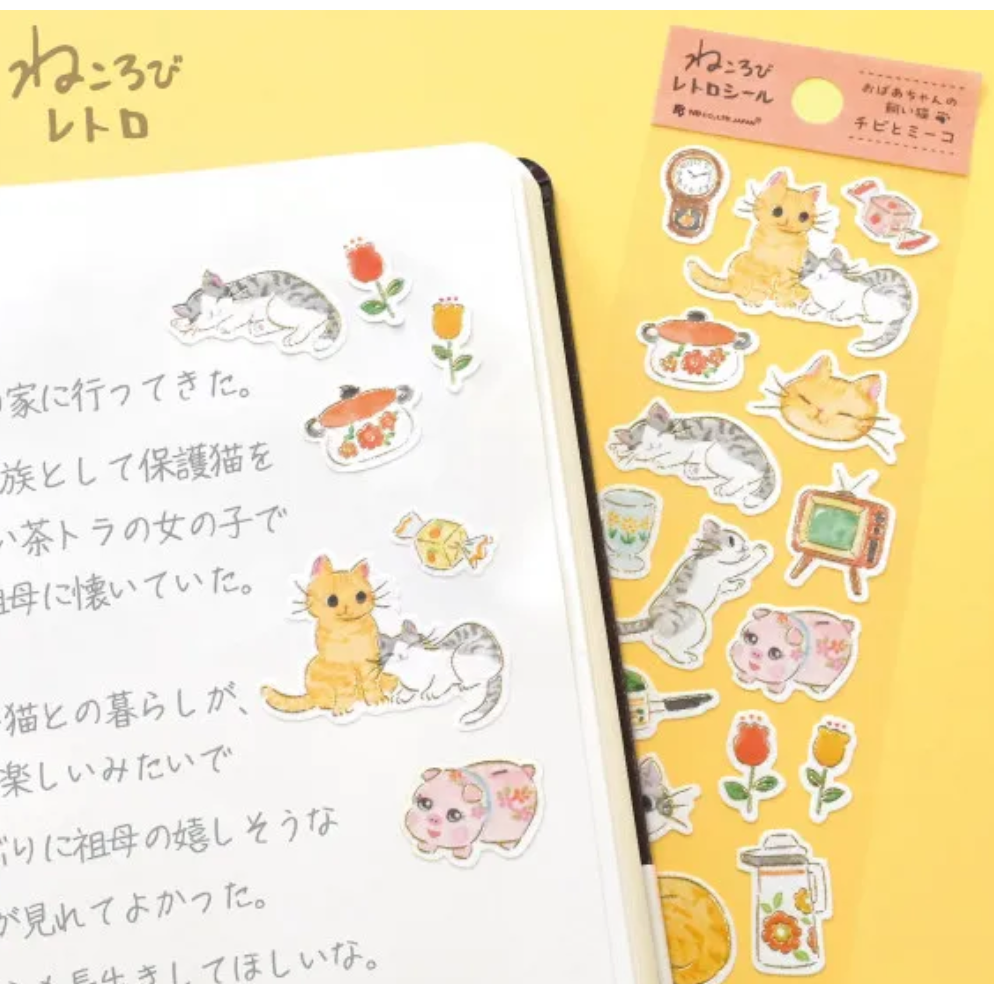 ねころび
レトロ
ねころび
レトロシール
NB CO.,LTD. JAPAN
おばあちゃんの
飼い猫
チビとミーコ
の家に行ってきた。
族として保護猫を
い茶トラの女の子で
祖母に懐いていた。
猫との暮らしが、
楽しいみたいで
ぶりに祖母の嬉しそうな
が見れてよかった。
長生きしてほしいな。